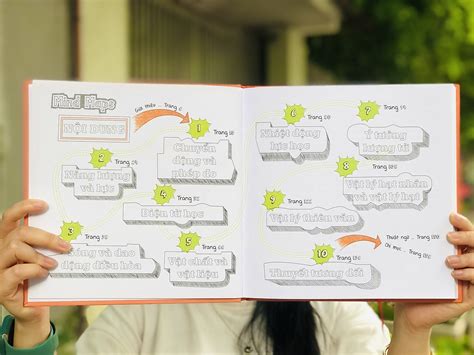 Mind Maps
NỘI DUNG
Giới thiệu ... Trang
1
Trang
Chuyển
động và
phép đo
2
Trang
Năng lượng
và lực
3
Trang
Sóng và dao
động điều hòa
4
Trang
Điện từ học
5
Trang
Vật chất và
vật liệu
6
Trang
Nhiệt động
lực học
7
Trang
Ý tưởng
lượng tử
8
Trang
Vật lý hạt nhân
và vật lý hạt
9
Trang
Vật lý thiên văn
10
Trang
Thuyết tương đối
Thuật ngữ ... Trang
Chỉ mục ... Trang